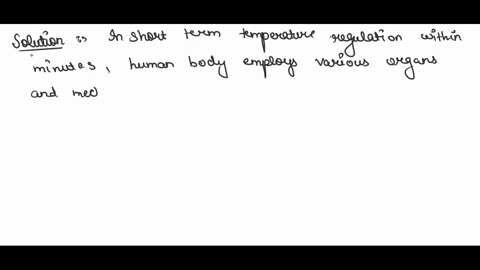 Solution :; In short term temperature regulation within
minutes, human body employs various organs
and mec